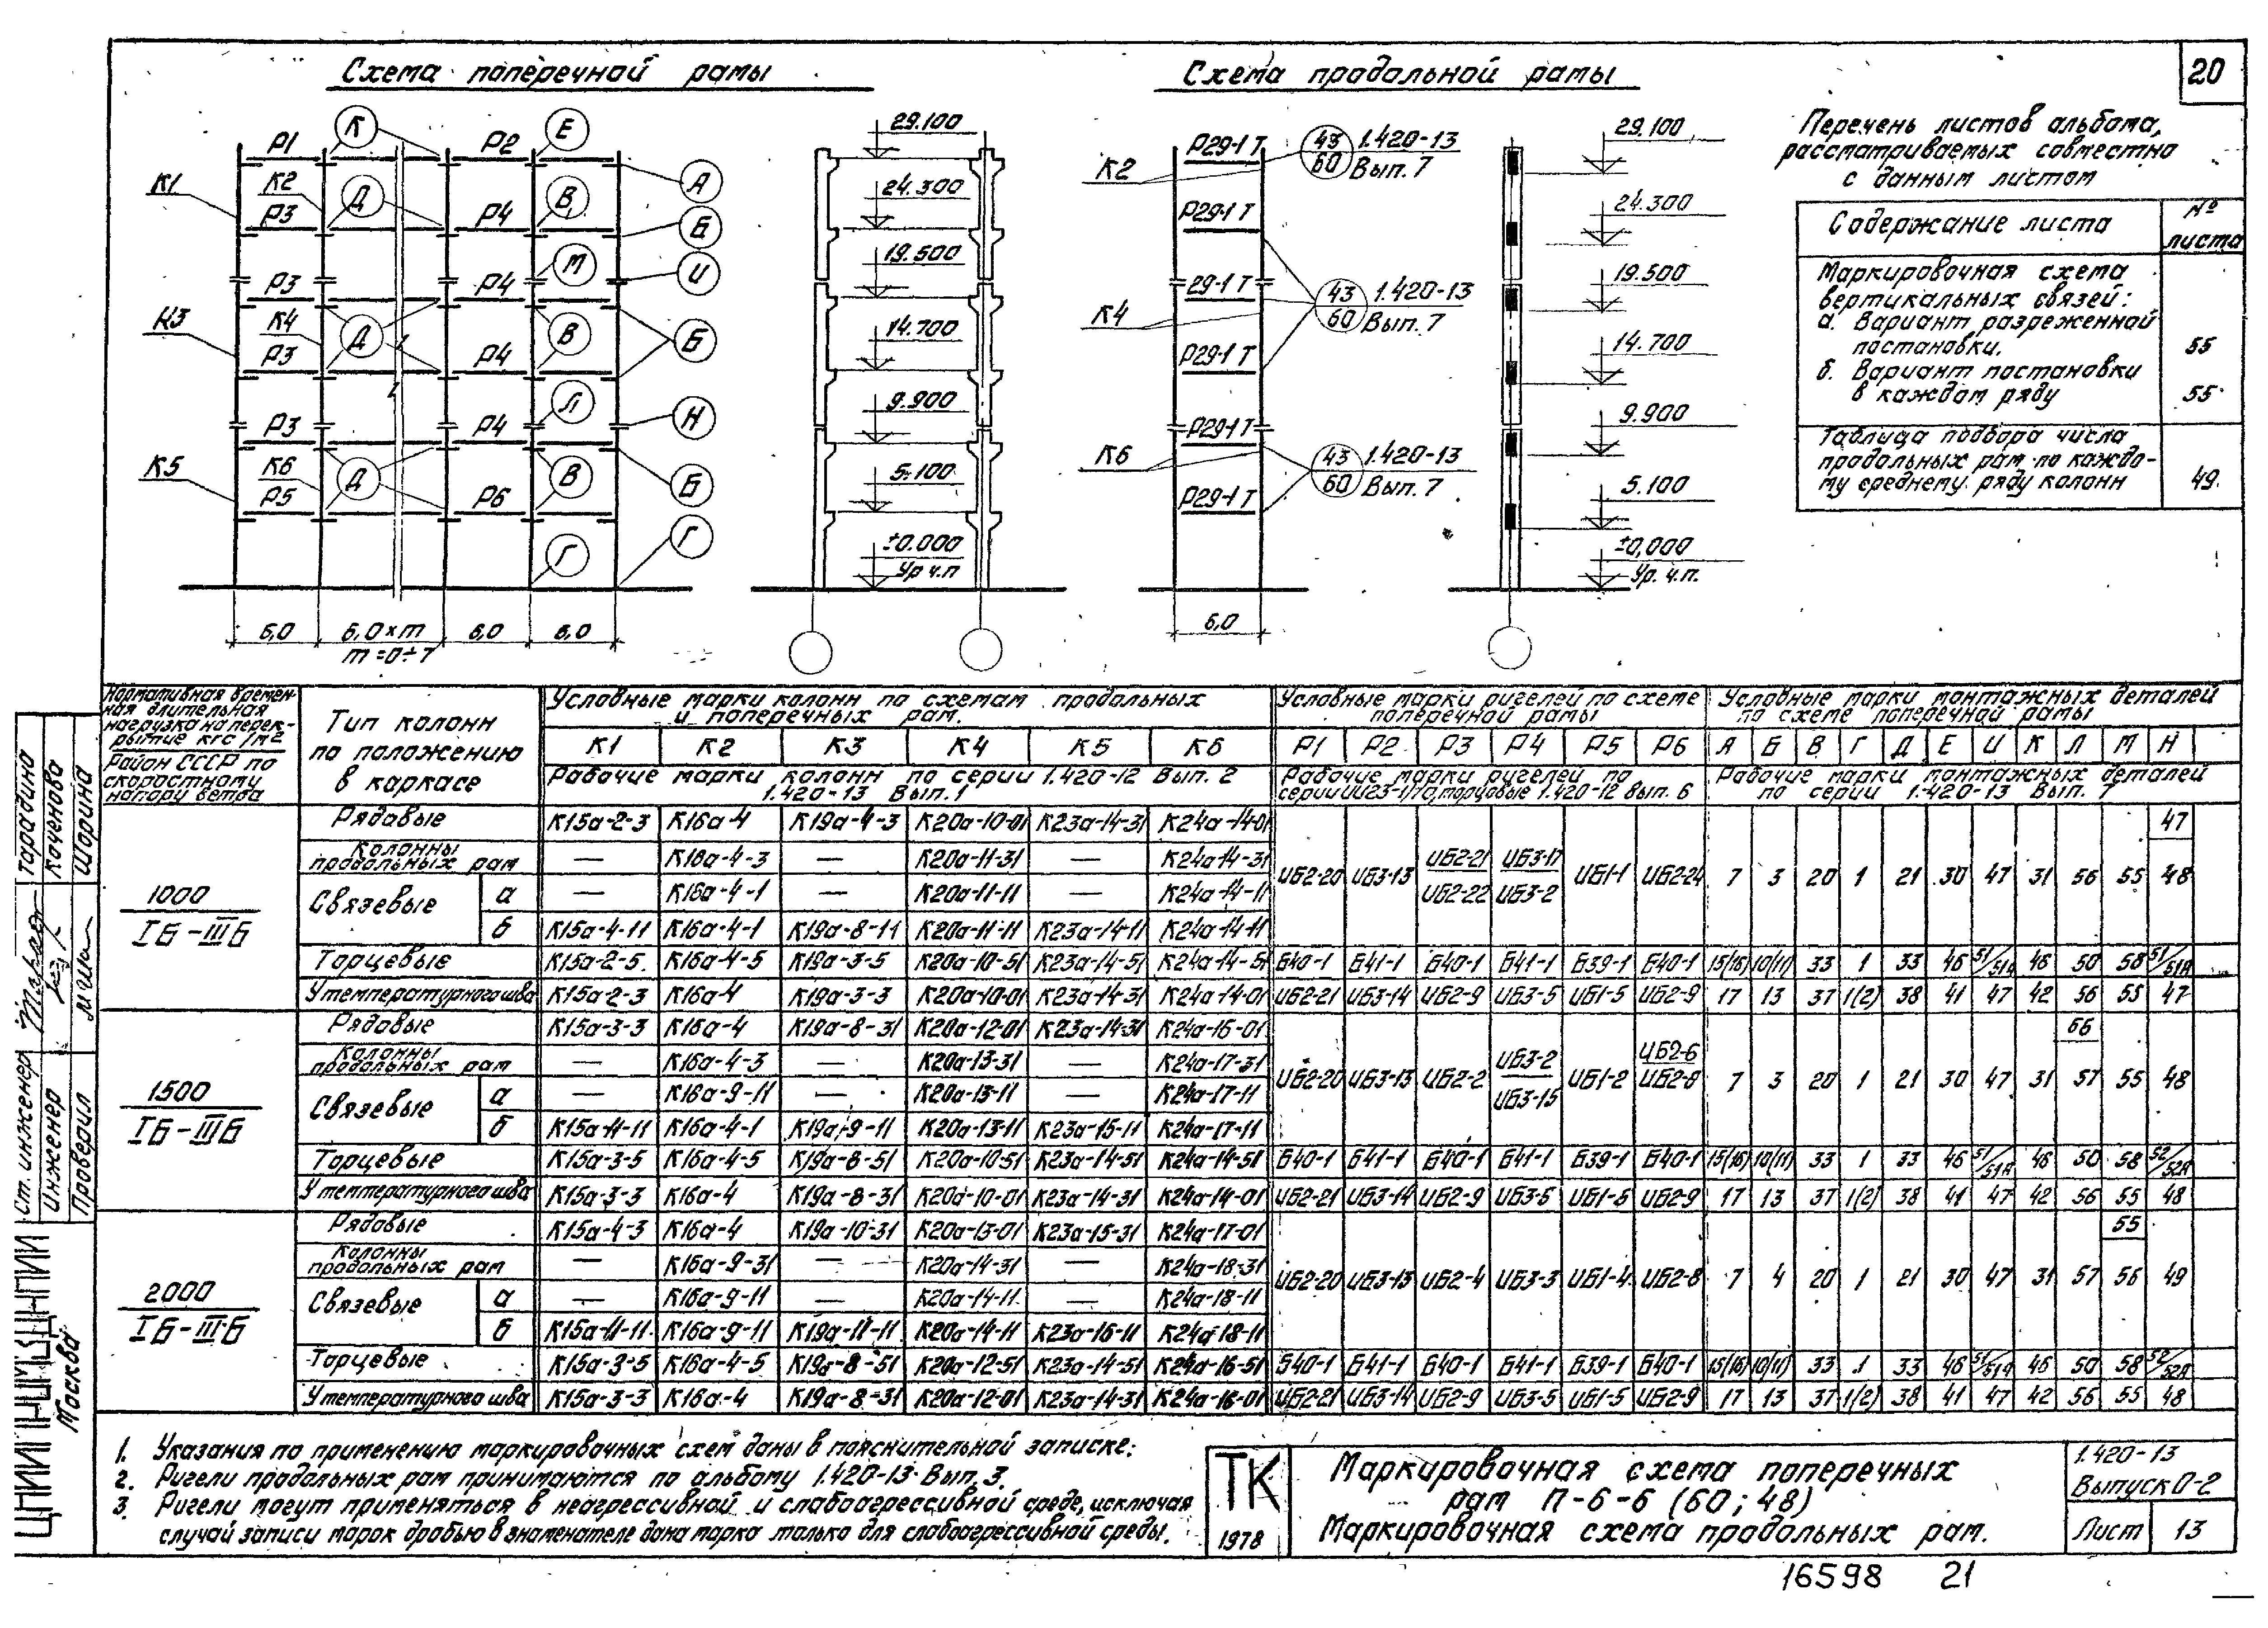 20
Схема поперечной рамы
Схема продольной рамы
Р1
К
Р2
Е
К1
К2
Д
В
А
Р3
Р4
Б
М
И
Р3
Р4
К3
К4
Д
В
Б
Р3
Р4
Л
Н
Р3
Р4
К5
К6
Д
В
Б
Р5
Р6
Г
Г
6,0
6,0×m
6,0
6,0
m=0÷7
29.100
24.300
19.500
14.700
9.900
5.100
±0.000
Ур ч.п
К2
Р29-1 Т
43 1.420-13
60 Вып. 7
Р29-1 Т
29-1 Т
43 1.420-13
60 Вып. 7
К4
Р29-1 Т
Р29-1 Т
К6
43 1.420-13
60 Вып. 7
Р29-1 Т
6,0
29.100
24.300
19.500
14.700
9.900
5.100
±0,000
Ур. ч.п.
Перечень листов альбома,
рассматриваемых совместно
с данным листом
Содержание листа
№ листа
Маркировочная схема
вертикальных связей:
а. Вариант разреженной
постановки. 55
б. Вариант постановки
в каждом ряду 55
Таблица подбора числа
продольных рам по каждо-
му среднему ряду колонн 49
Нормативная времен-
ная длительная
нагрузка на перек-
рытие кгс/м2
Район СССР по
скоростному
напору ветра
Тип колонн
по положению
в каркасе
Условные марки колонн по схемам продольных
и поперечных рам.
Условные марки ригелей по схеме
поперечной рамы
Условные марки монтажных деталей
по схеме поперечной рамы
К1 К2 К3 К4 К5 К6 Р1 Р2 Р3 Р4 Р5 Р6 А Б В Г Д Е И К Л М Н
Рабочие марки колонн по серии 1.420-12 Вып. 2
1.420-13 Вып. 1
Рабочие марки ригелей по
серии ИИ23-1/70, торцовые 1.420-12 Вып. 6
Рабочие марки монтажных деталей
по серии 1.420-13 Вып. 7
1000
IБ-IIIБ
Рядовые К15а-2-3 К16а-4 К19а-4-3 К20а-10-01 К23а-14-31 К24а-14-01
Колонны
продольных рам — К16а-4-3 — К20а-11-31 — К24а-14-31
Связевые а — К16а-4-1 — К20а-11-11 — К24а-14-11
б К15а-4-11 К16а-4-1 К19а-8-11 К20а-11-11 К23а-14-11 К24а-14-11
ИБ2-20 ИБ3-13 ИБ2-21 ИБ2-22 ИБ3-17 ИБ3-2 ИБ1-1 ИБ2-24 7 3 20 1 21 30 47 31 56 55 47 48
Торцевые К15а-2-5 К16а-4-5 К19а-3-5 К20а-10-51 К23а-14-51 К24а-14-51 Б40-1 Б41-1 Б40-1 Б41-1 Б39-1 Б40-1 15(16) 10(11) 33 1 33 46 51/51А 46 50 58 51/51А
У температурного шва К15а-2-3 К16а-4 К19а-3-3 К20а-10-01 К23а-14-31 К24а-14-01 ИБ2-21 ИБ3-14 ИБ2-9 ИБ3-5 ИБ1-5 ИБ2-9 17 13 37 1(2) 38 41 47 42 56 55 47
1500
IБ-IIIБ
Рядовые К15а-3-3 К16а-4 К19а-8-31 К20а-12-01 К23а-14-31 К24а-16-01
Колонны
продольных рам — К16а-4-3 — К20а-13-31 — К24а-17-31
Связевые а — К16а-9-11 — К20а-13-11 — К24а-17-11
б К15а-11-11 К16а-4-1 К19а-9-11 К20а-13-11 К23а-15-11 К24а-17-11
ИБ2-20 ИБ3-13 ИБ2-2 ИБ3-2 ИБ3-15 ИБ1-2 ИБ2-6 ИБ2-8 7 3 20 1 21 30 47 31 56 57 55 48
Торцевые К15а-3-5 К16а-4-5 К19а-8-51 К20а-10-51 К23а-14-51 К24а-14-51 Б40-1 Б41-1 Б40-1 Б41-1 Б39-1 Б40-1 15(16) 10(11) 33 1 33 46 51/51А 46 50 58 52/52А
У температурного шва К15а-3-3 К16а-4 К19а-8-31 К20а-10-01 К23а-14-31 К24а-14-01 ИБ2-21 ИБ3-14 ИБ2-9 ИБ3-5 ИБ1-5 ИБ2-9 17 13 37 1(2) 38 41 47 42 56 55 48
2000
IБ-IIIБ
Рядовые К15а-4-3 К16а-4 К19а-10-31 К20а-13-01 К23а-15-31 К24а-17-01
Колонны
продольных рам — К16а-9-31 — К20а-14-31 — К24а-18-31
Связевые а — К16а-9-11 — К20а-14-11 — К24а-18-11
б К15а-11-11 К16а-9-11 К19а-11-11 К20а-14-11 К23а-16-11 К24а-18-11
ИБ2-20 ИБ3-13 ИБ2-4 ИБ3-3 ИБ1-4 ИБ2-8 7 4 20 1 21 30 47 31 57 55 56 49
Торцевые К15а-3-5 К16а-4-5 К19а-8-51 К20а-12-51 К23а-14-51 К24а-16-51 Б40-1 Б41-1 Б40-1 Б41-1 Б39-1 Б40-1 15(16) 10(11) 33 1 33 46 51/51А 46 50 58 52/52А
У температурного шва К15а-3-3 К16а-4 К19а-8-31 К20а-12-01 К23а-14-31 К24а-16-01 ИБ2-21 ИБ3-14 ИБ2-9 ИБ3-5 ИБ1-5 ИБ2-9 17 13 37 1(2) 38 41 47 42 56 55 48
1. Указания по применению маркировочных схем даны в пояснительной записке.
2. Ригели продольных рам принимаются по альбому 1.420-13 Вып. 3.
3. Ригели могут применяться в неагрессивной и слабоагрессивной среде, исключая
случай записи марок дробью в знаменателе дана марка только для слабоагрессивной среды.
ТК
1978
Маркировочная схема поперечных
рам П-6-6 (60; 48)
Маркировочная схема продольных рам.
1.420-13
Выпуск 0-2
Лист 13
16598 21
Ст. инженер Тарадина
Инженер Каченова
Проверил Шорина
Москва